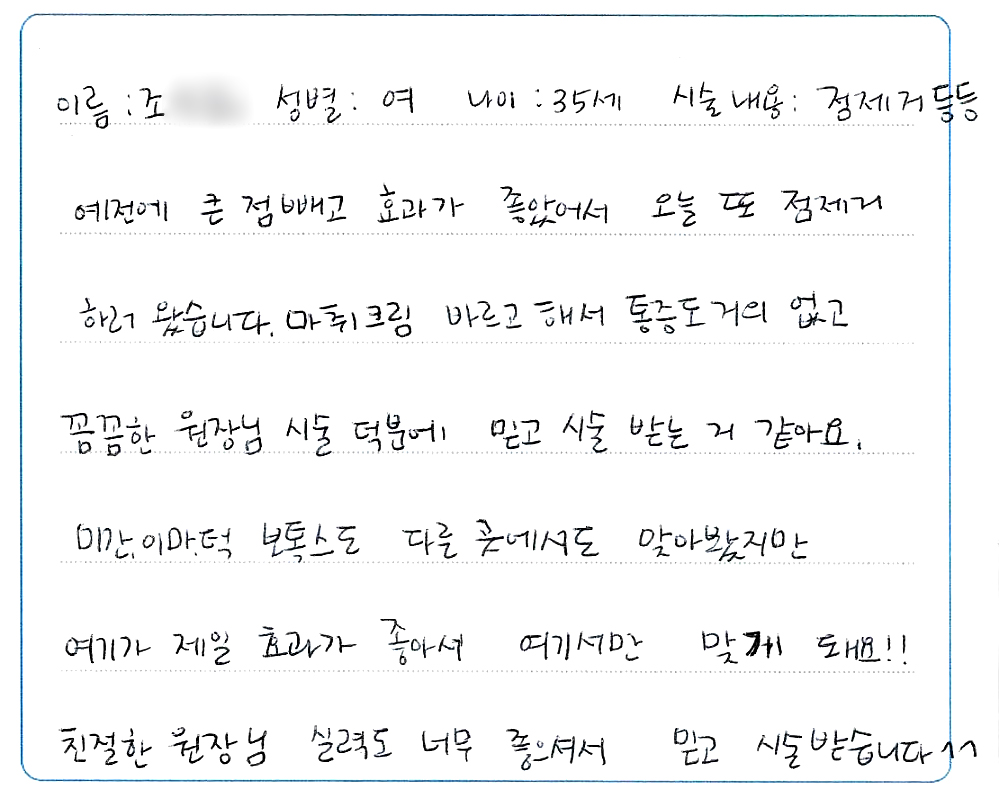 이름 : 조 성별 : 여 나이 : 35세 시술내용 : 점제거 등등
예전에 큰 점빼고 효과가 좋았어서 오늘 또 점제거
하러 왔습니다. 마취크림 바르고 해서 통증도 거의 없고
꼼꼼한 원장님 시술 덕분에 믿고 시술 받는 거 같아요.
미간.이마.턱 보톡스도 다른 곳에서도 맞아봤지만
여기가 제일 효과가 좋아서 여기서만 맞게 돼요!!
친절한 원장님 실력도 너무 좋으셔서 믿고 시술받습니다^^